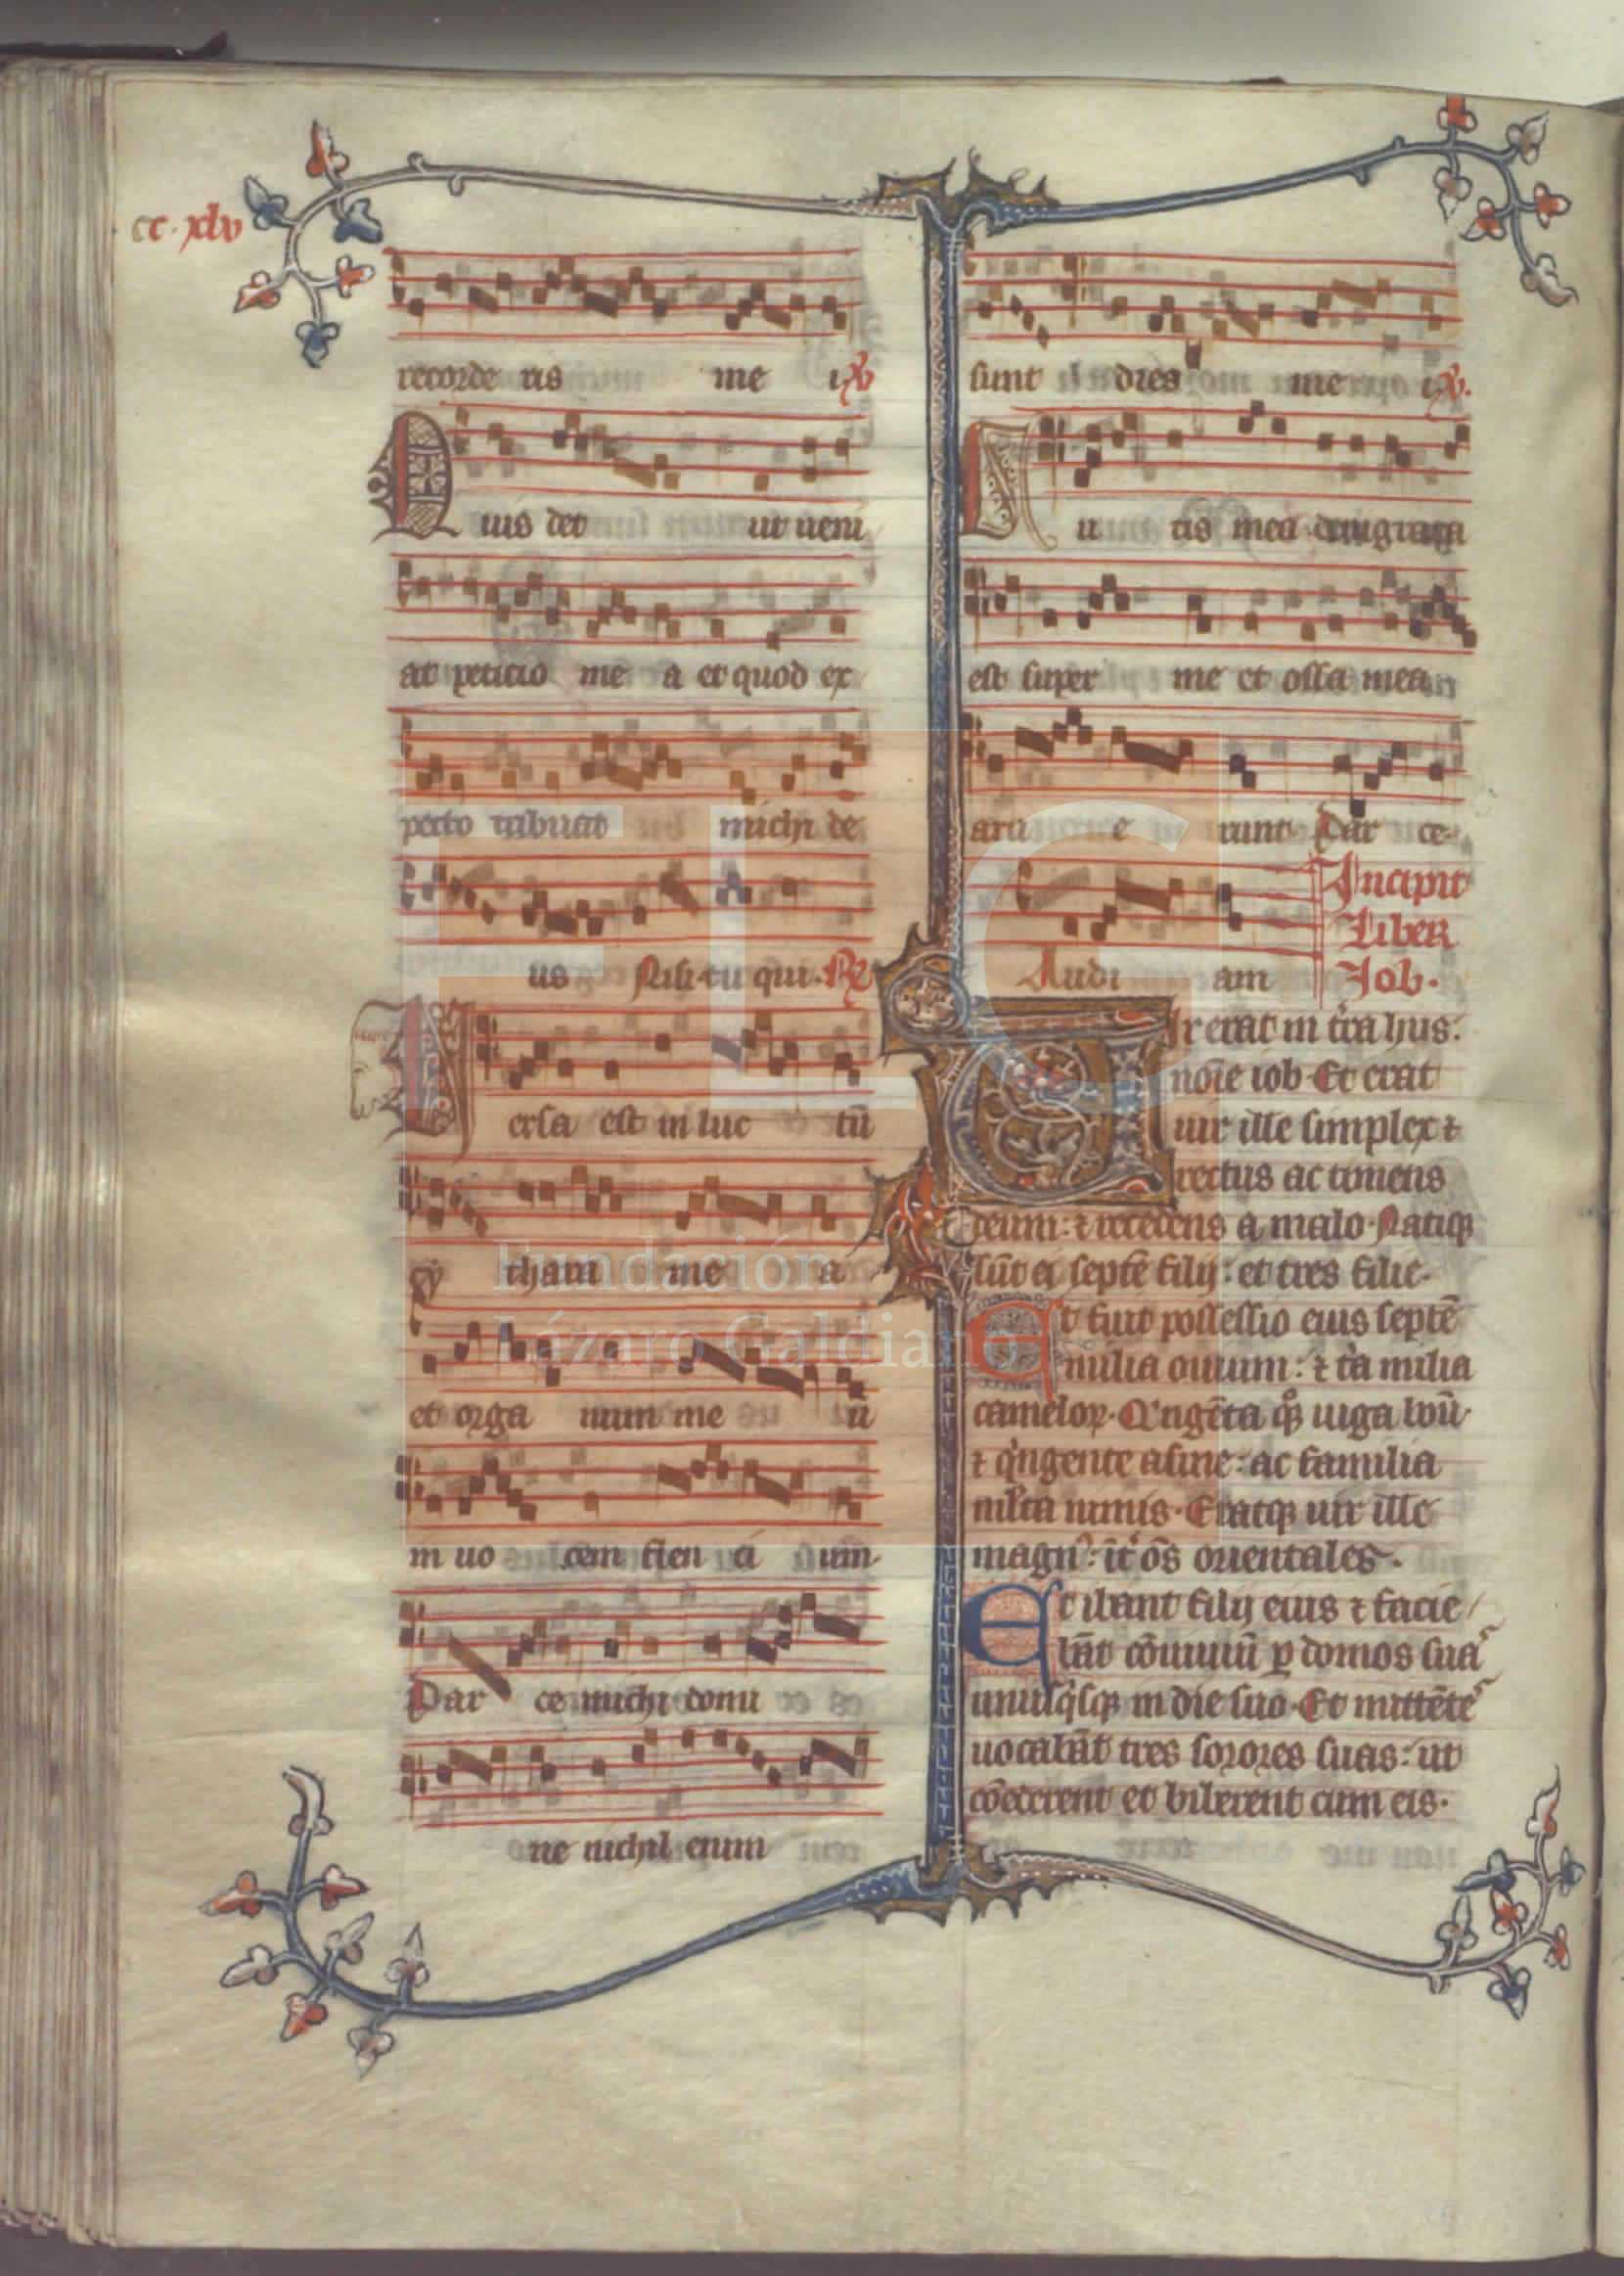 cc·xlv
recorde ris me i ℣
Quis det ut ueni
at peticio me a et quod ex
pecto tribuat michi de
us Nisi tu qui ℟
Uersa est in luc tū
cy thara me a
et orga num me ū
in uo cem flen ci um
Par ce michi domi
ne nichil enim
sunt dies me i ℣.
Cu tis mea denigrata
est super me et ossa mea
aru e runt Par ce
Audi am
Incipit
Liber
Job.
Vir erat in tr̄a hus:
noīe iob. Et erat
uir ille simplex ⁊
rectus ac timens
deum: ⁊ recedens a malo. Natiq̨
sūt ei septē filij: et tres filie.
Et fuit possessio eius septē
milia ouium: ⁊ tria milia
cameloꝝ. Q'ngēta qͦꝫ iuga boū.
⁊ q'ngente asine: ac familia
ml'ta nimis. Eratqꝫ uir ille
magn': īt' oēs orientales.
Et ibant filij eius ⁊ facie
bāt cōuiuiū ꝑ domos suas
unusq'sqꝫ in die suo. Et mittētes
uocabāt tres sorores suas: ut
cōederent et biberent cum eis.
FLG
Fundación
Lázaro Galdiano